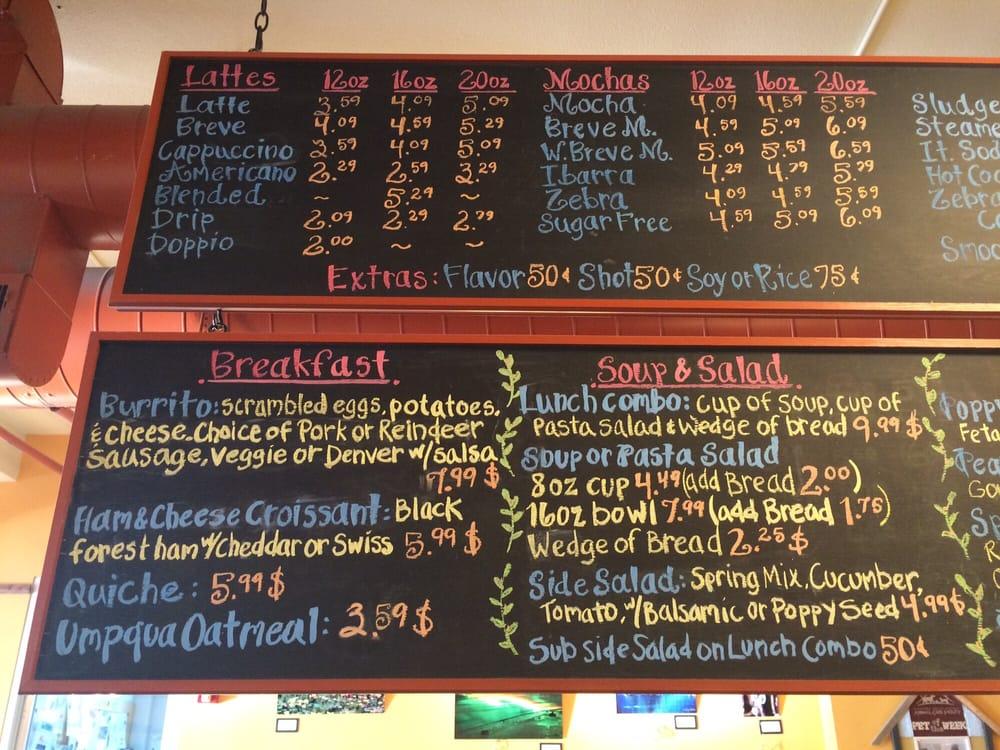 Lattes 12oz 16oz 20oz
Latte 3.59 4.09 5.09
Breve 4.09 4.59 5.29
Cappuccino 3.59 4.09 5.09
Americano 2.29 2.59 3.29
Blended ~ 5.29 ~
Drip 2.09 2.29 2.79
Doppio 2.00 ~ ~
Mochas 12oz 16oz 20oz
Mocha 4.09 4.59 5.59
Breve M. 4.59 5.09 6.09
W. Breve M. 5.09 5.59 6.59
Ibarra 4.29 4.79 5.79
Zebra 4.09 4.59 5.59
Sugar Free 4.59 5.09 6.09
Extras: Flavor 50¢ Shot 50¢ Soy or Rice 75¢
Sludge
Steame
It. Sod
Hot Coc
Zebra
C
Smoo
Breakfast
Burrito: scrambled eggs, potatoes,
& cheese. Choice of Pork or Reindeer
Sausage, Veggie or Denver w/salsa
7.99 $
Ham & Cheese Croissant: Black
forest ham w/Cheddar or Swiss 5.99 $
Quiche: 5.99 $
Umpqua Oatmeal: 3.59 $
Soup & Salad
Lunch combo: cup of soup, cup of
Pasta salad & wedge of bread 9.99 $
Soup or Pasta Salad
8 oz cup 4.49 (add Bread 2.00)
16oz bowl 7.99 (add Bread 1.75)
Wedge of Bread 2.25 $
Side Salad: Spring Mix, Cucumber,
Tomato, w/Balsamic or Poppy Seed 4.99 $
Sub side Salad on Lunch Combo 50¢
Popp
Feta
Pea
Go
Sp
R
PET WEEK